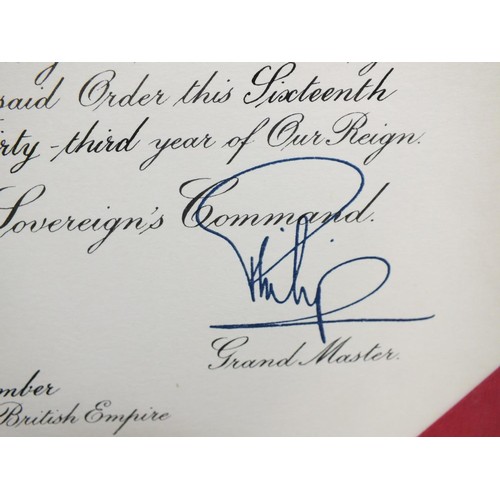 said Order this Sixteenth
rty-third year of Our Reign.
Sovereign's Command.
Philip
Grand Master.
mber
British Empire